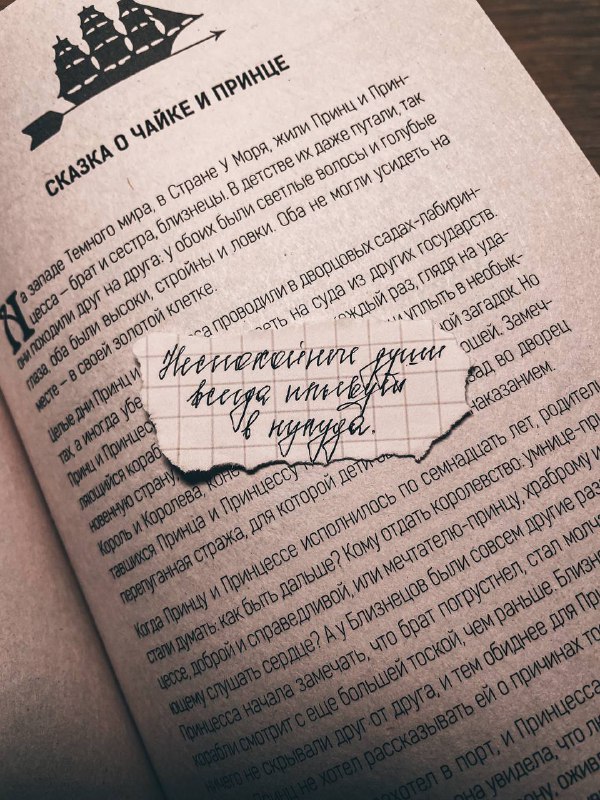 СКАЗКА О ЧАЙКЕ И ПРИНЦЕ
На западе Темного мира, в Стране у Моря, жили Принц и Прин-
цесса — брат и сестра, близнецы. В детстве их даже путали, так
они походили друг на друга: у обоих были светлые волосы и голубые
глаза, оба были высоки, стройны и ловки. Оба не могли усидеть на
месте — в своей золотой клетке.
Целые дни Принц и проводили в дворцовых садах-лабирин-
тах, а иногда на суда из других государств.
Принц и каждый раз, глядя на уда-
ляющийся уплыть в необык-
новенную страну загадок. Но
Король и Королева, Замеч-
тавшихся Принца и Принцессу во дворец
перепуганная стража, для которой дети наказанием.
Неспокойные души
всегда плывут
в никуда.
Когда Принцу и Принцессе исполнилось по семнадцать лет, родители
стали думать: как быть дальше? Кому отдать королевство: умнице-прин-
цессе, доброй и справедливой, или мечтателю-принцу, храброму и
ющему слушать сердце? А у Близнецов были совсем другие раз
Принцесса начала замечать, что брат погрустнел, стал молч
корабли смотрит с еще большей тоской, чем раньше. Близне
ничего не скрывали друг от друга, и тем обиднее для При
Принц не хотел рассказывать ей о причинах то
в порт, и Принцесса
она увидела, что лю
ожив